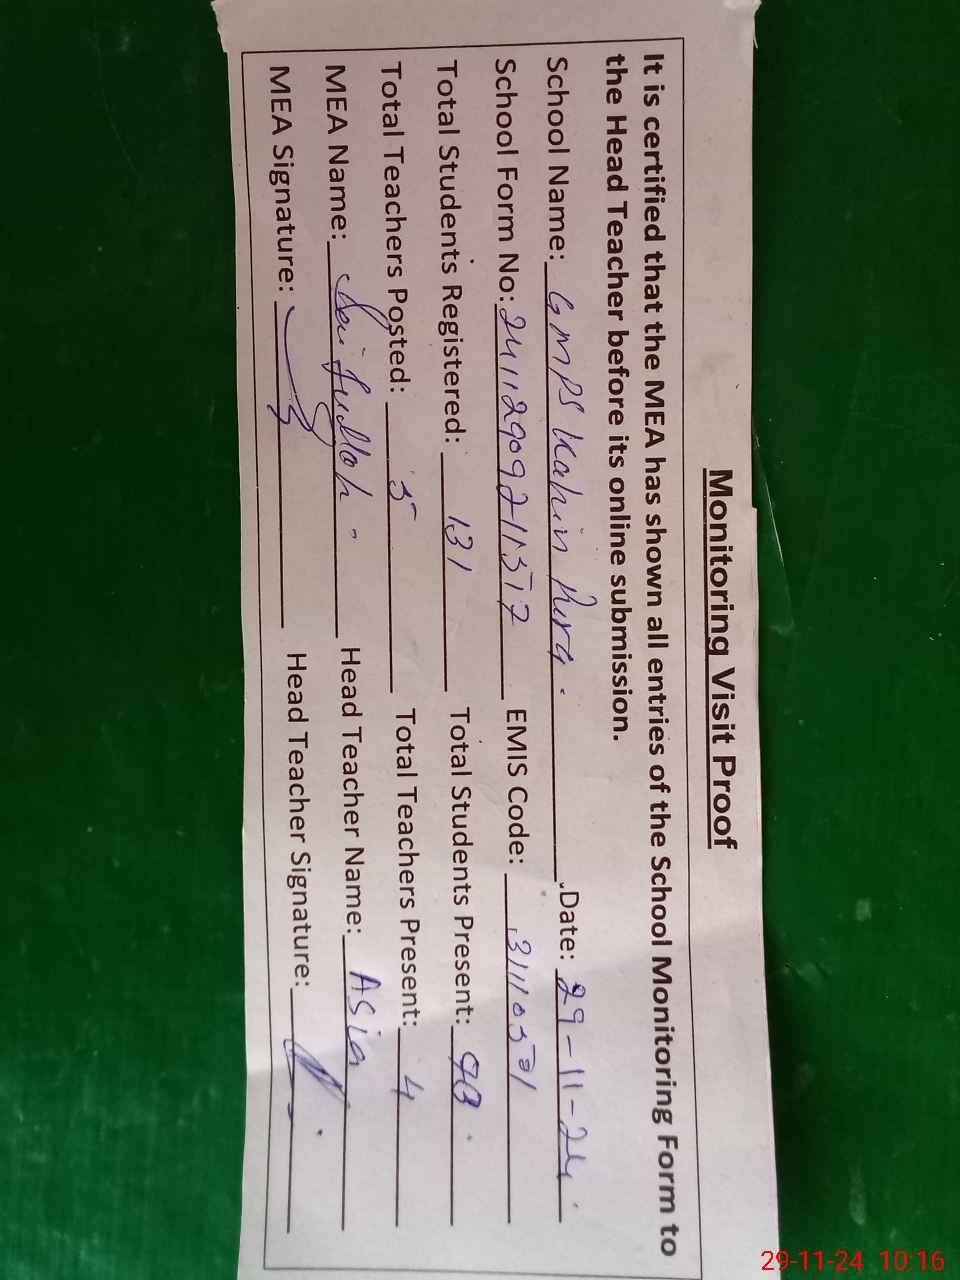 Monitoring Visit Proof
It is certified that the MEA has shown all entries of the School Monitoring Form to
the Head Teacher before its online submission.
School Name: GMPS Kahin Pura. Date: 29-11-24
School Form No: EMIS Code:
Total Students Registered: 131 Total Students Present:
Total Teachers Posted: 5 Total Teachers Present: 4
MEA Name: Head Teacher Name: Asia
MEA Signature: Head Teacher Signature:
29-11-24 10:16